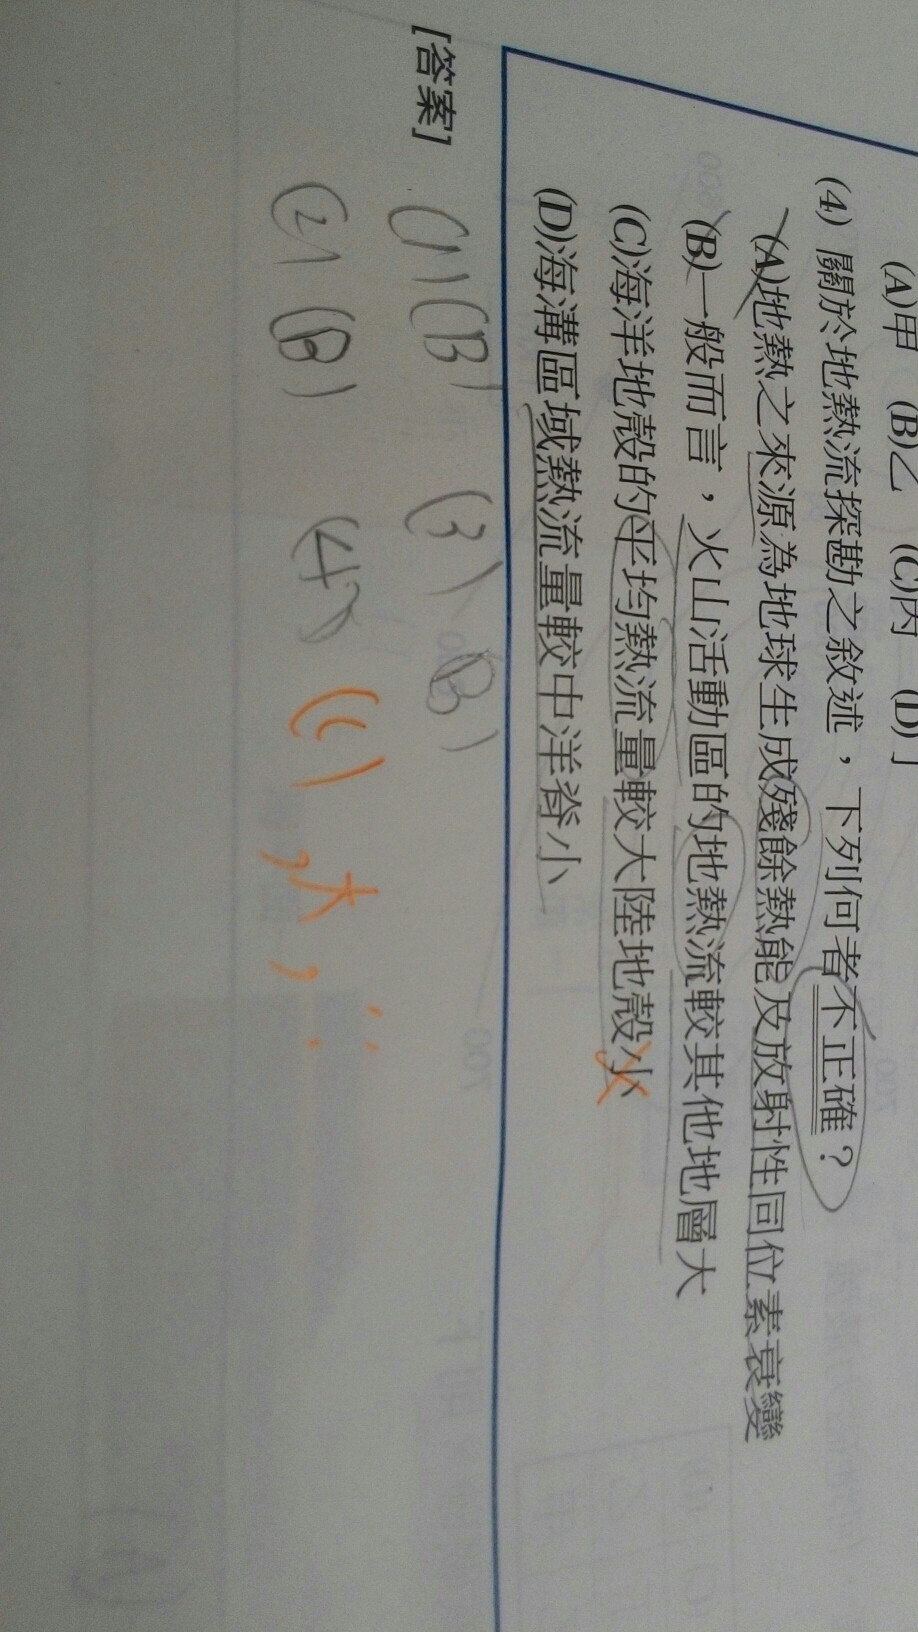 (A)甲 (B)乙 (C)丙 (D)丁
(4) 關於地熱流探勘之敘述，下列何者不正確？
(A)地熱之來源為地球生成殘餘熱能及放射性同位素衰變
(B)一般而言，火山活動區的地熱流較其他地層大
(C)海洋地殼的平均熱流量較大陸地殼小
(D)海溝區域熱流量較中洋脊小
[答案]
(1)(B) (3)(B)
(2)(B) (4) (C)，大，